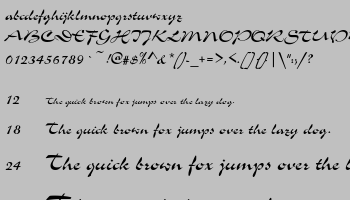 abcdefghijklmnopqrstuvwxyz
ABCDEFGHIJKLMNOPQRSTUV
0123456789 ` ~ !@#$%^&*()-_+=>,<.[]{}|\":;/?
12 The quick brown fox jumps over the lazy dog.
18 The quick brown fox jumps over the lazy dog.
24 The quick brown fox jumps over the l